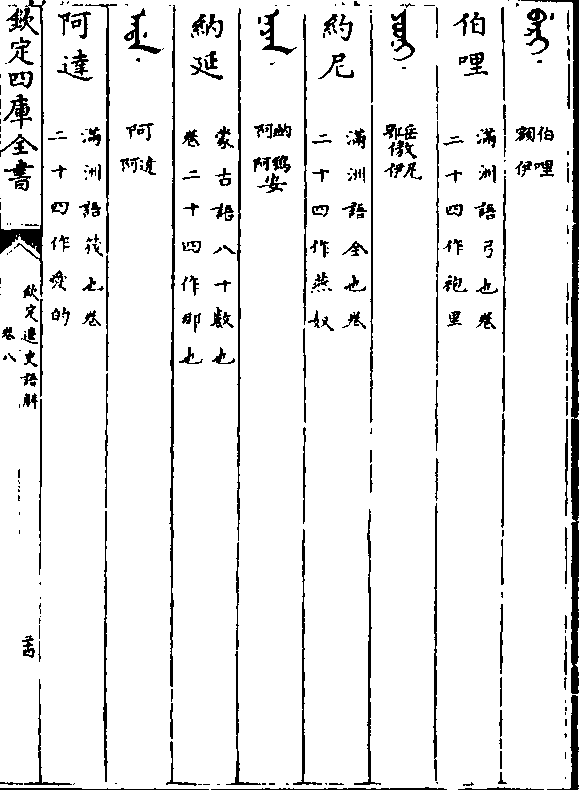 ᠪᡝᡵᡳ
伯哩
額伊
伯哩
滿洲語弓也卷
二十四作袍里
ᠶᠣᠣᠨᡳ
岳傲尼
鄂伊
約尼
滿洲語全也卷
二十四作燕奴
ᠨᠠᠶᠠᠨ
納鴉安
阿阿
納延
蒙古語八十數也
卷二十四作那也
ᠠᡩᠠ
阿達
阿
阿達
滿洲語筏也卷
二十四作愛的
欽定四庫全書
欽定遼史語解
卷八